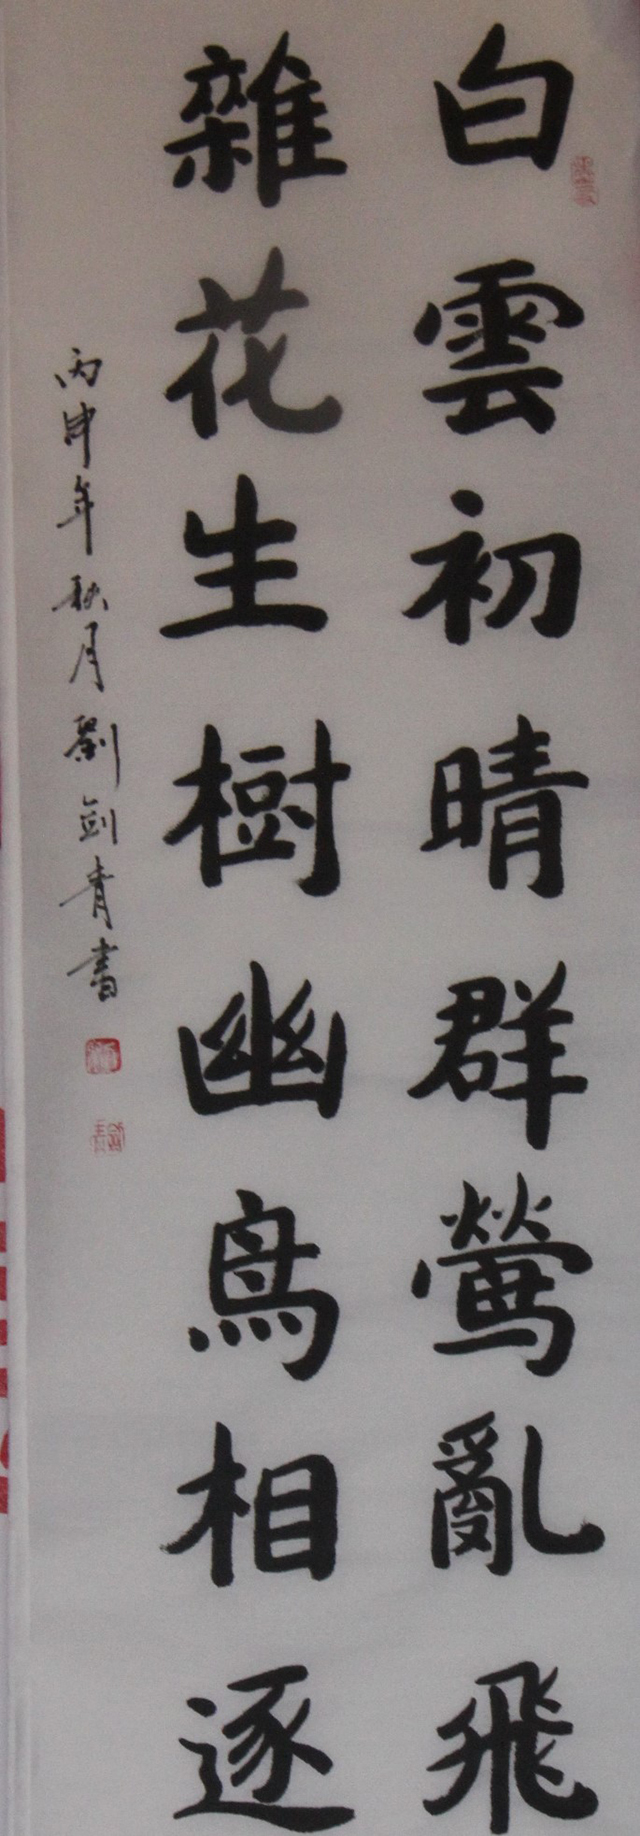 白雲初晴群鶯亂飛
雜花生樹幽鳥相逐
丙申年秋月劉劍青書